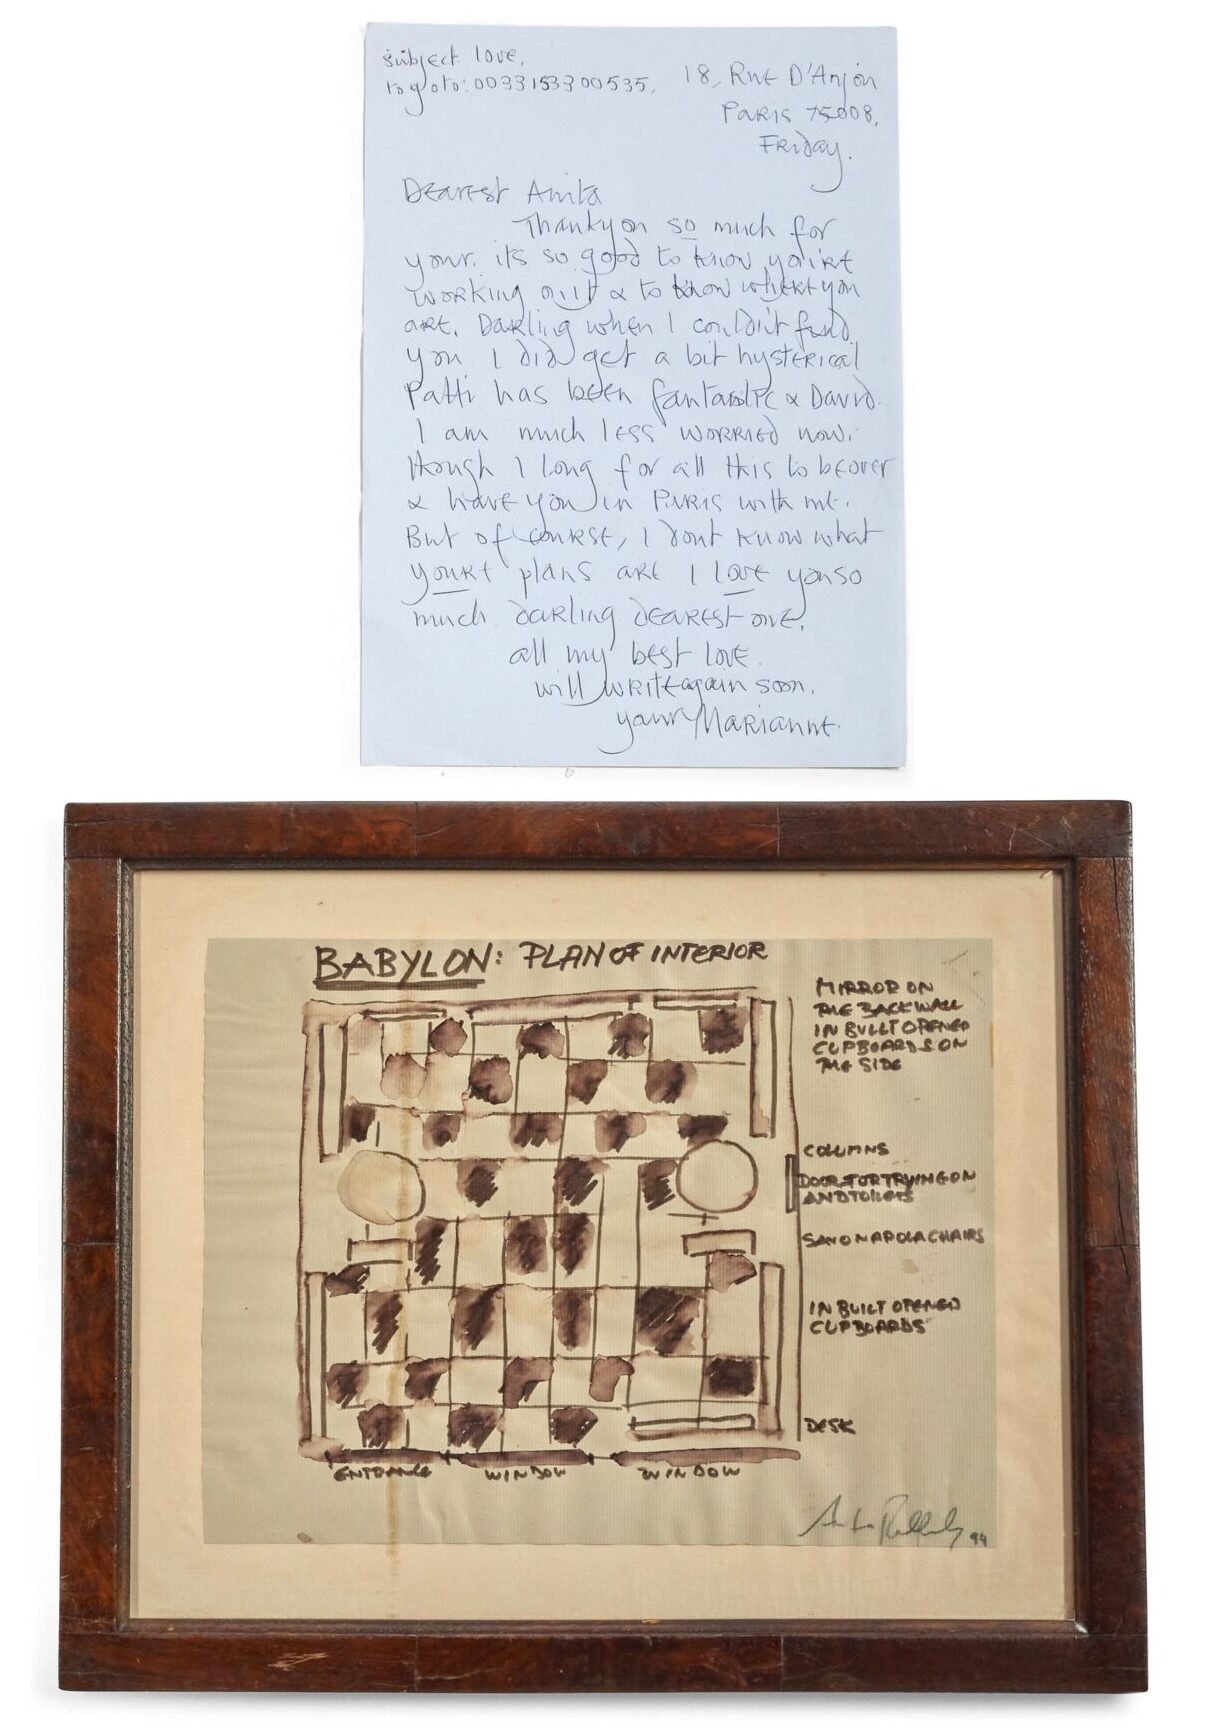 subject love,
to go to: 0033153300535,
18, Rue D'Anjou
Paris 75008,
Friday.
Dearest Anita
Thankyou so much for
your. its so good to know you're
working on it & to know where you
are. Darling when I couldn't find
you I did get a bit hysterical
Patti has been fantastic & David.
I am much less worried now.
though I long for all this to be over
& have you in Paris with me.
But of course, I dont know what
your plans are I love you so
much darling dearest one,
all my best love.
will write again soon.
your Marianne.
BABYLON: PLAN OF INTERIOR
MIRROR ON
THE BACK WALL
IN BUILT OPENED
CUPBOARDS ON
THE SIDE
COLUMNS
DOOR FOR TRYING ON
AND TOILETS
SAVONAROLA CHAIRS
IN BUILT OPENED
CUPBOARDS
DESK
ENTRANCE WINDOW WINDOW
94